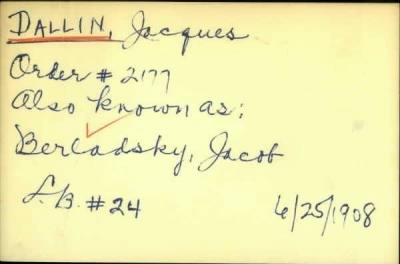 DALLIN, Jacques
Order # 2177
Also known as:
Berladsky, Jacob
L.B. #24 6/25/1908